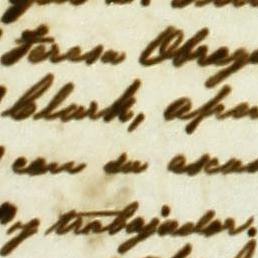 Teresa Obreg
Clark, apen
con su escas
y trabajador.